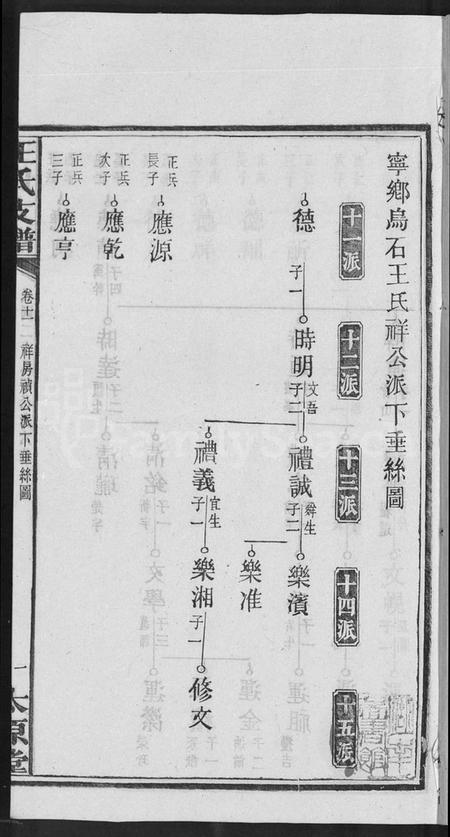 寧鄉烏石王氏祥公派下垂絲圖
十一派
十二派
十三派
十四派
十五派
德
子一
時明
文吾
子二
禮誠
舜生
子二
樂濱
樂准
禮義
宜生
子一
樂湘
子一
修文
正兵
長子
應源
正兵
次子
應乾
正兵
三子
應亨
王氏支譜
卷十二
祥房禎公派下垂絲圖
一
太原堂